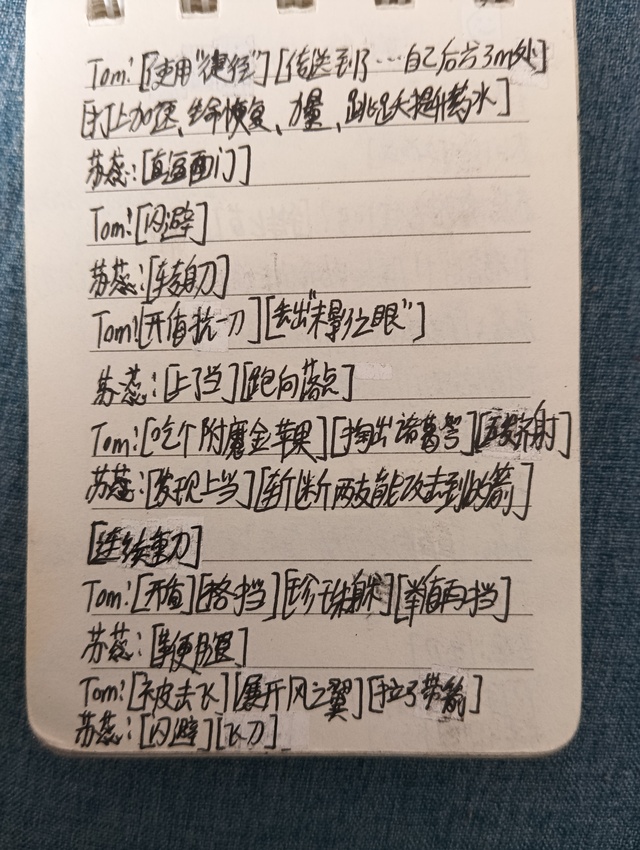 Tom:[使用"捷径"][传送到了…自己后方3m处]
[打上加速、生命恢复、力量、跳跃提升药水]
苏蕊:[直逼面门]
Tom:[闪避]
苏蕊:[转身刀]
Tom:[开盾抗一刀][丢出"末影之眼"]
苏蕊:[上了当][跑向落点]
Tom:[吃个附魔金苹果][掏出诸葛弩][五发齐射]
苏蕊:[发现上当][斩断两支能攻击到的箭]
[连续重刀]
Tom:[开盾][格挡][珍珠][举盾再挡]
苏蕊:[腿]
Tom:[被击飞][展开风之翼][拉了箭]
苏蕊:[闪避][飞刀]